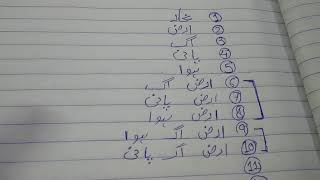 ①
② ارض
③ آگ
④ پانی
⑤ ہوا
⑥ ارض آگ
⑦ ارض پانی
⑧ ارض ہوا
⑨ ارض آگ ہوا
⑩ ارض آگ پانی
⑪